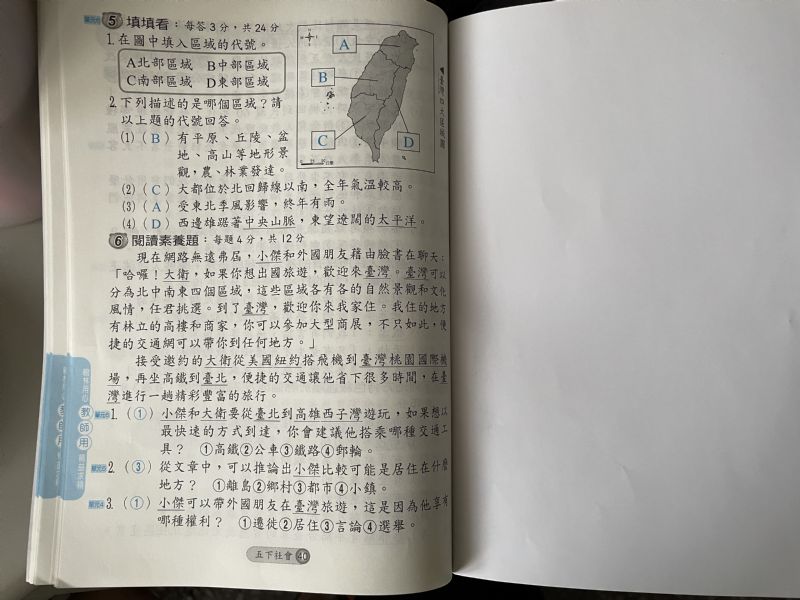 單元6 5 填填看：每答3分，共24分
1.在圖中填入區域的代號。
A北部區域 B中部區域
C南部區域 D東部區域
A
B
C
D
◀臺灣四大區域圖
2.下列描述的是哪個區域？請
以上題的代號回答。
(1)（B）有平原、丘陵、盆
地、高山等地形景
觀，農、林業發達。
(2)（C）大都位於北回歸線以南，全年氣溫較高。
(3)（A）受東北季風影響，終年有雨。
(4)（D）西邊雄踞著中央山脈，東望遼闊的太平洋。
6 閱讀素養題：每題4分，共12分
現在網路無遠弗屆，小傑和外國朋友藉由臉書在聊天：
「哈囉！大衛，如果你想出國旅遊，歡迎來臺灣。臺灣可以
分為北中南東四個區域，這些區域各有各的自然景觀和文化
風情，任君挑選。到了臺灣，歡迎你來我家住。我住的地方
有林立的高樓和商家，你可以參加大型商展，不只如此，便
捷的交通網可以帶你到任何地方。」
接受邀約的大衛從美國紐約搭飛機到臺灣桃園國際機
場，再坐高鐵到臺北，便捷的交通讓他省下很多時間，在臺
灣進行一趟精彩豐富的旅行。
1.（①）小傑和大衛要從臺北到高雄西子灣遊玩，如果想以
最快速的方式到達，你會建議他搭乘哪種交通工
具？ ①高鐵②公車③鐵路④郵輪。
2.（③）從文章中，可以推論出小傑比較可能是居住在什麼
地方？ ①離島②鄉村③都市④小鎮。
單元4 3.（①）小傑可以帶外國朋友在臺灣旅遊，這是因為他享有
哪種權利？ ①遷徙②居住③言論④選舉。
翰林用心
教師用
五下社會 40